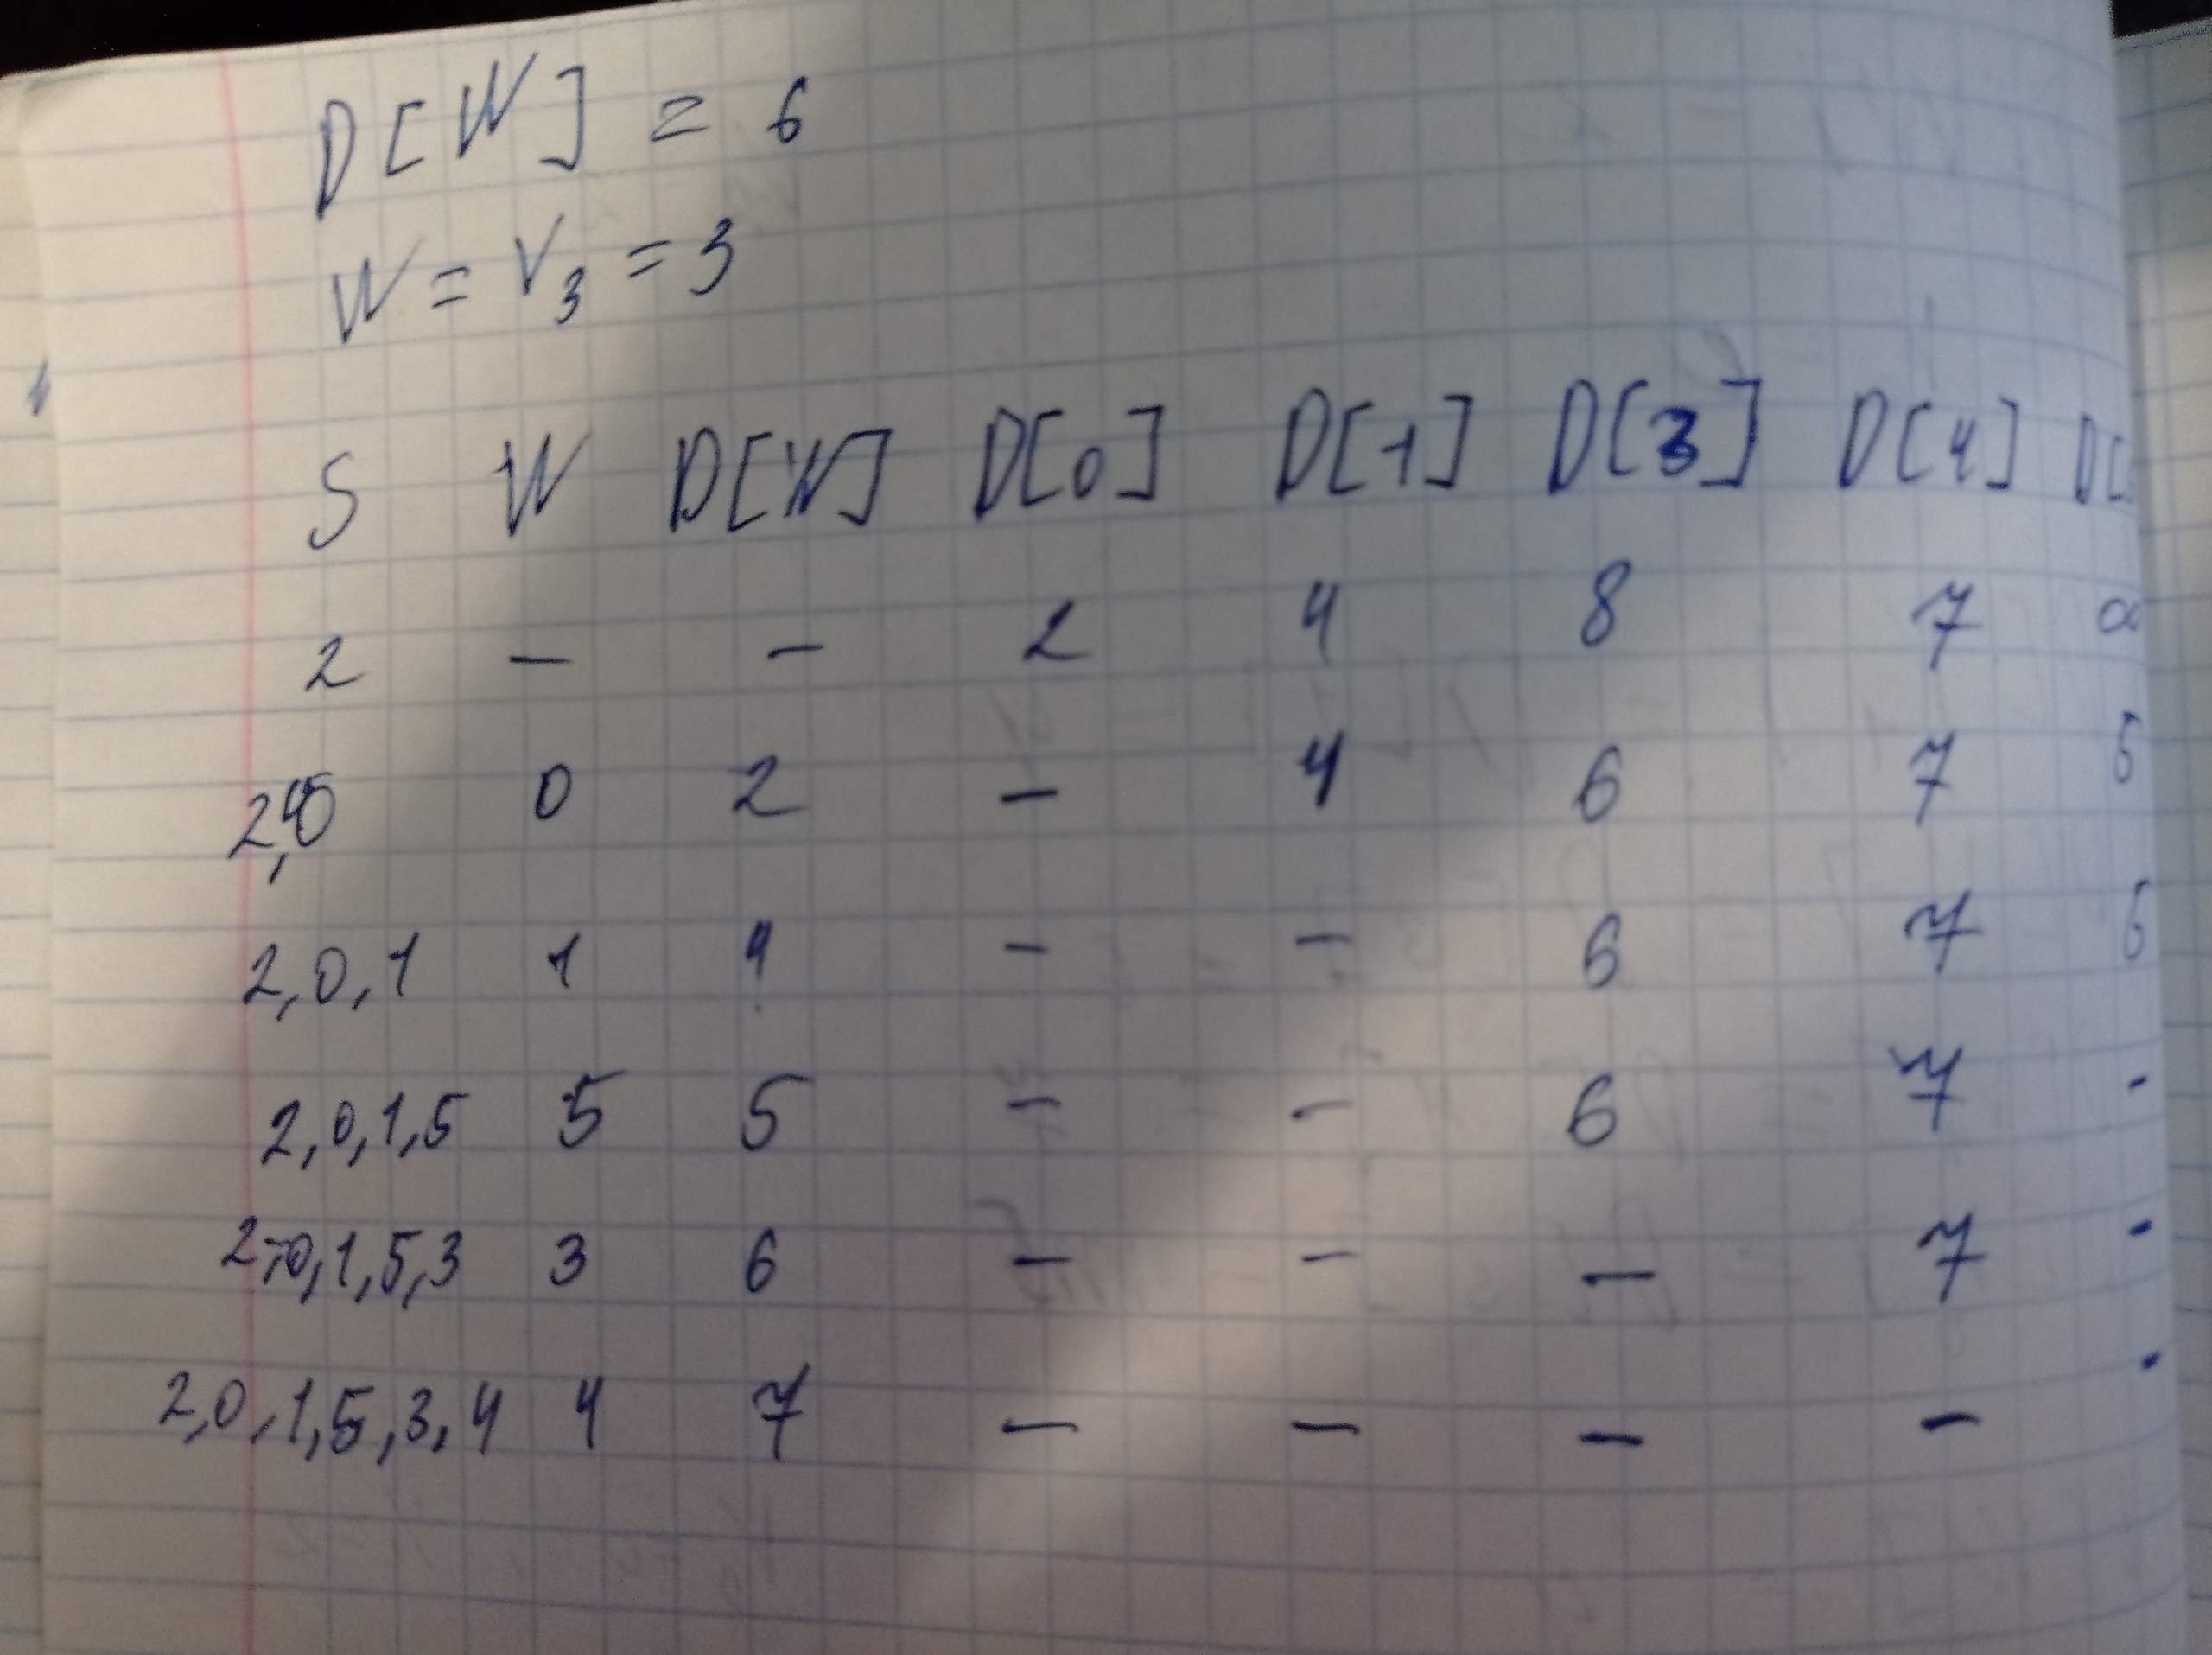 D[W] = 6
W = V3 = 3
S W D[W] D[0] D[1] D[3] D[4] D[
2 — — 2 4 8 7 ∞
2,0 0 2 — 4 6 7 5
2,0,1 1 4 — — 6 7 5
2,0,1,5 5 5 — — 6 7 -
2,0,1,5,3 3 6 — — — 7 -
2,0,1,5,3,4 4 7 — — — — -